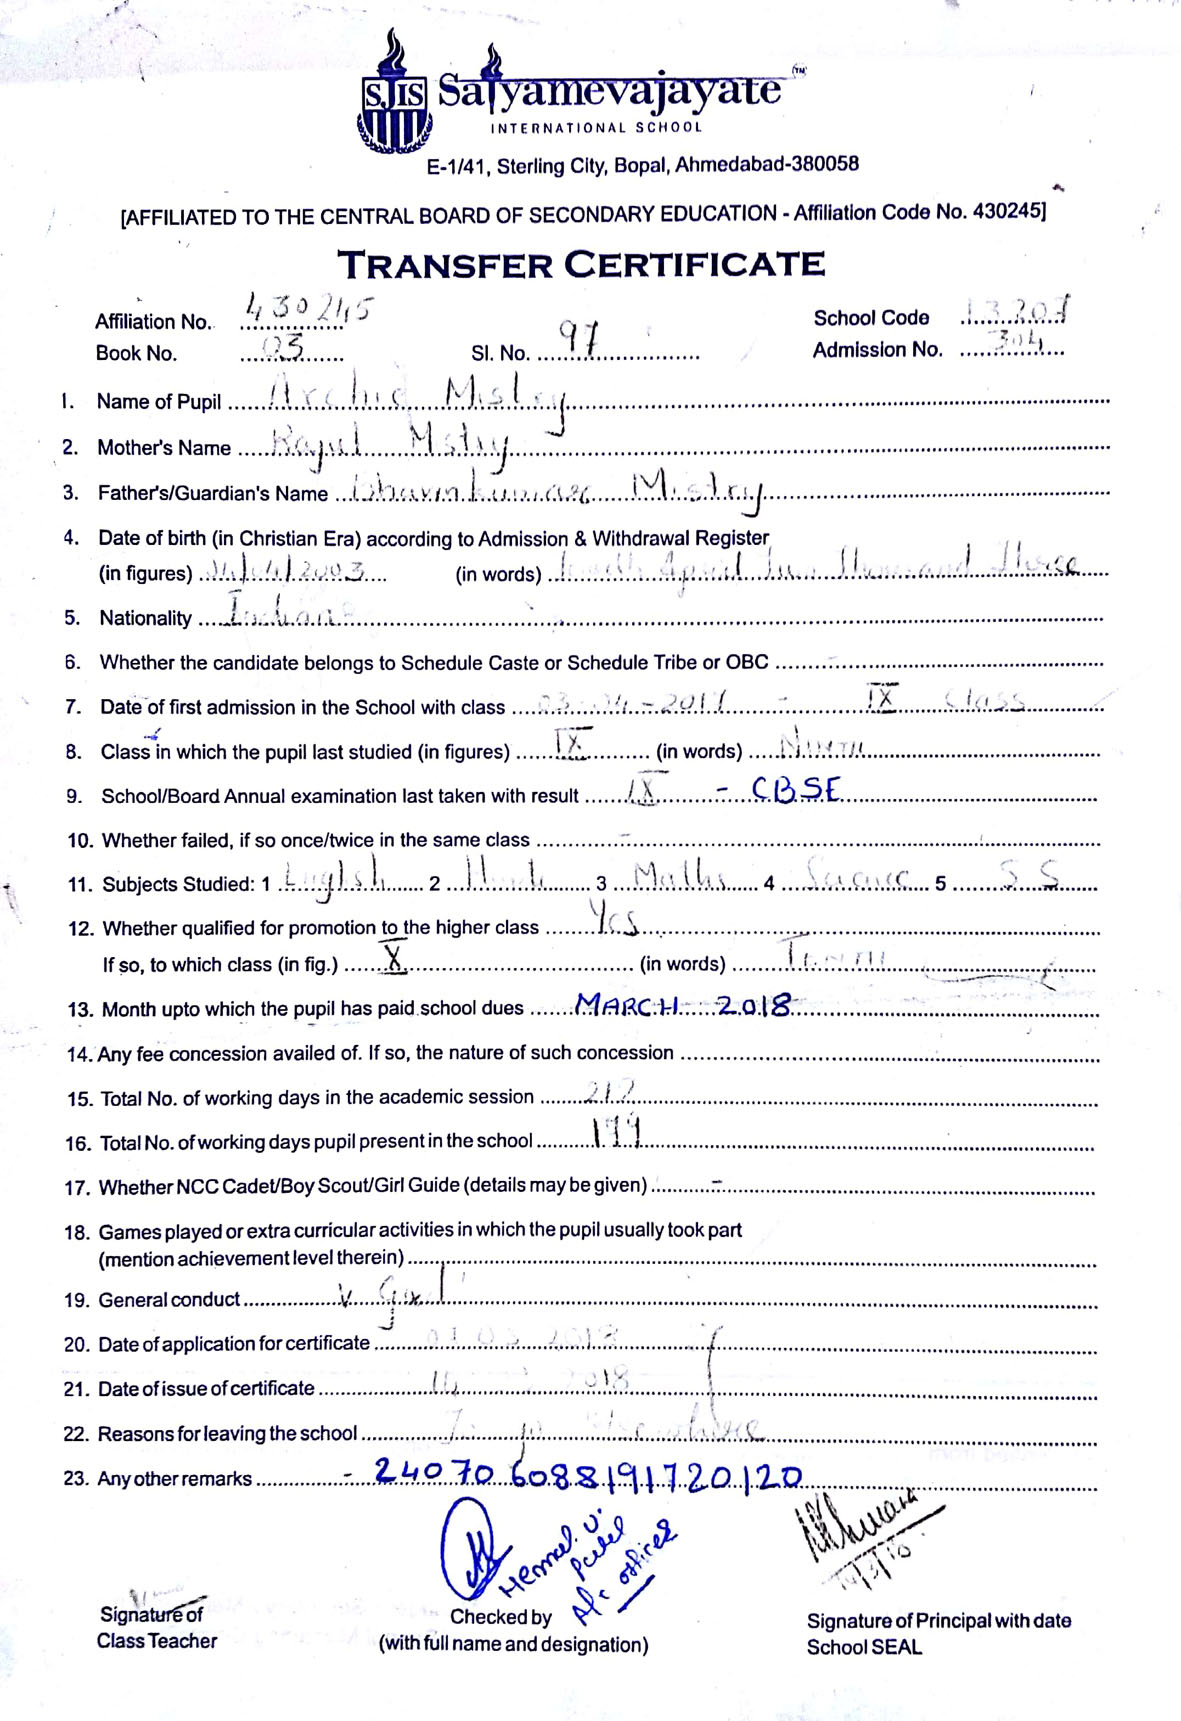 SJIS Satyamevajayate TM
INTERNATIONAL SCHOOL
E-1/41, Sterling City, Bopal, Ahmedabad-380058
[AFFILIATED TO THE CENTRAL BOARD OF SECONDARY EDUCATION - Affiliation Code No. 430245]
TRANSFER CERTIFICATE
Affiliation No. 430245 School Code 13207
Book No. 03 Sl. No. 97 Admission No. 304
1. Name of Pupil Mistry
2. Mother's Name Rajul Mstry
3. Father's/Guardian's Name Bhavinkumar Mistry
4. Date of birth (in Christian Era) according to Admission & Withdrawal Register
(in figures) 04/04/2003 (in words) April Two Thousand Three
5. Nationality Indian
6. Whether the candidate belongs to Schedule Caste or Schedule Tribe or OBC -
7. Date of first admission in the School with class 03-04-2017 - IX Class
8. Class in which the pupil last studied (in figures) IX (in words) Ninth
9. School/Board Annual examination last taken with result IX - CBSE
10. Whether failed, if so once/twice in the same class -
11. Subjects Studied: 1 English 2 Hindi 3 Maths 4 Science 5 S S
12. Whether qualified for promotion to the higher class Yes
If so, to which class (in fig.) X (in words)
13. Month upto which the pupil has paid school dues MARCH 2018
14. Any fee concession availed of. If so, the nature of such concession
15. Total No. of working days in the academic session 212
16. Total No. of working days pupil present in the school 199
17. Whether NCC Cadet/Boy Scout/Girl Guide (details may be given) -
18. Games played or extra curricular activities in which the pupil usually took part
(mention achievement level therein)
19. General conduct V Good
20. Date of application for certificate 2018
21. Date of issue of certificate 2018
22. Reasons for leaving the school
23. Any other remarks - 24070 6088191720120
Hemal. U.
Patel
A/c officer
Signature of Checked by Signature of Principal with date
Class Teacher (with full name and designation) School SEAL